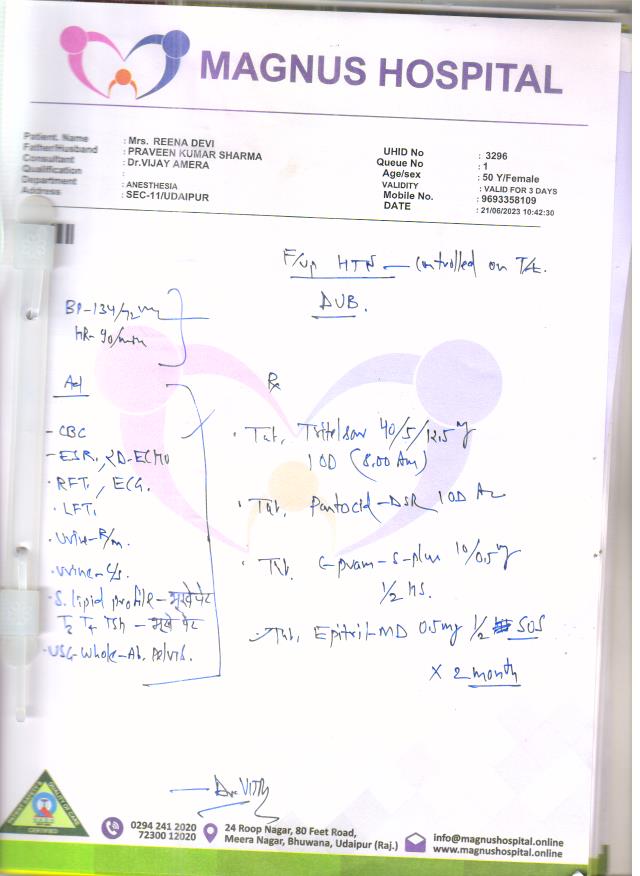 MAGNUS HOSPITAL
Patient. Name : Mrs. REENA DEVI
Father/Husband : PRAVEEN KUMAR SHARMA
Consultant : Dr.VIJAY AMERA
Qualification :
Department : ANESTHESIA
Address : SEC-11/UDAIPUR
UHID No : 3296
Queue No : 1
Age/sex : 50 Y/Female
VALIDITY : VALID FOR 3 DAYS
Mobile No. : 9693358109
DATE : 21/06/2023 10:42:30
F/up HTN – controlled on T/t.
DUB.
BP-134/72
HR-90/min
Ad
- CBC
- ESR, 2D-ECHO
- RFT, ECG.
- LFT,
- Urine-R/m.
- Urine-C/s.
- S. lipid profile - भूखे पेट
T3 T4 TSH - भूखे पेट
- USG-Whole-Ab. Pelvis.
Rx
Tab. Tritelsar 40/5/12.5mg
1 OD (8.00 Am)
Tab. Pantocid-DSR 1OD Ac
Tab. 10/0.5mg
1/2 HS.
Tab. Epitril-MD 0.5mg 1/2 SOS
x 2 month
CERTIFIED
0294 241 2020
72300 12020
24 Roop Nagar, 80 Feet Road,
Meera Nagar, Bhuwana, Udaipur (Raj.)
info@magnushospital.online
www.magnushospital.online